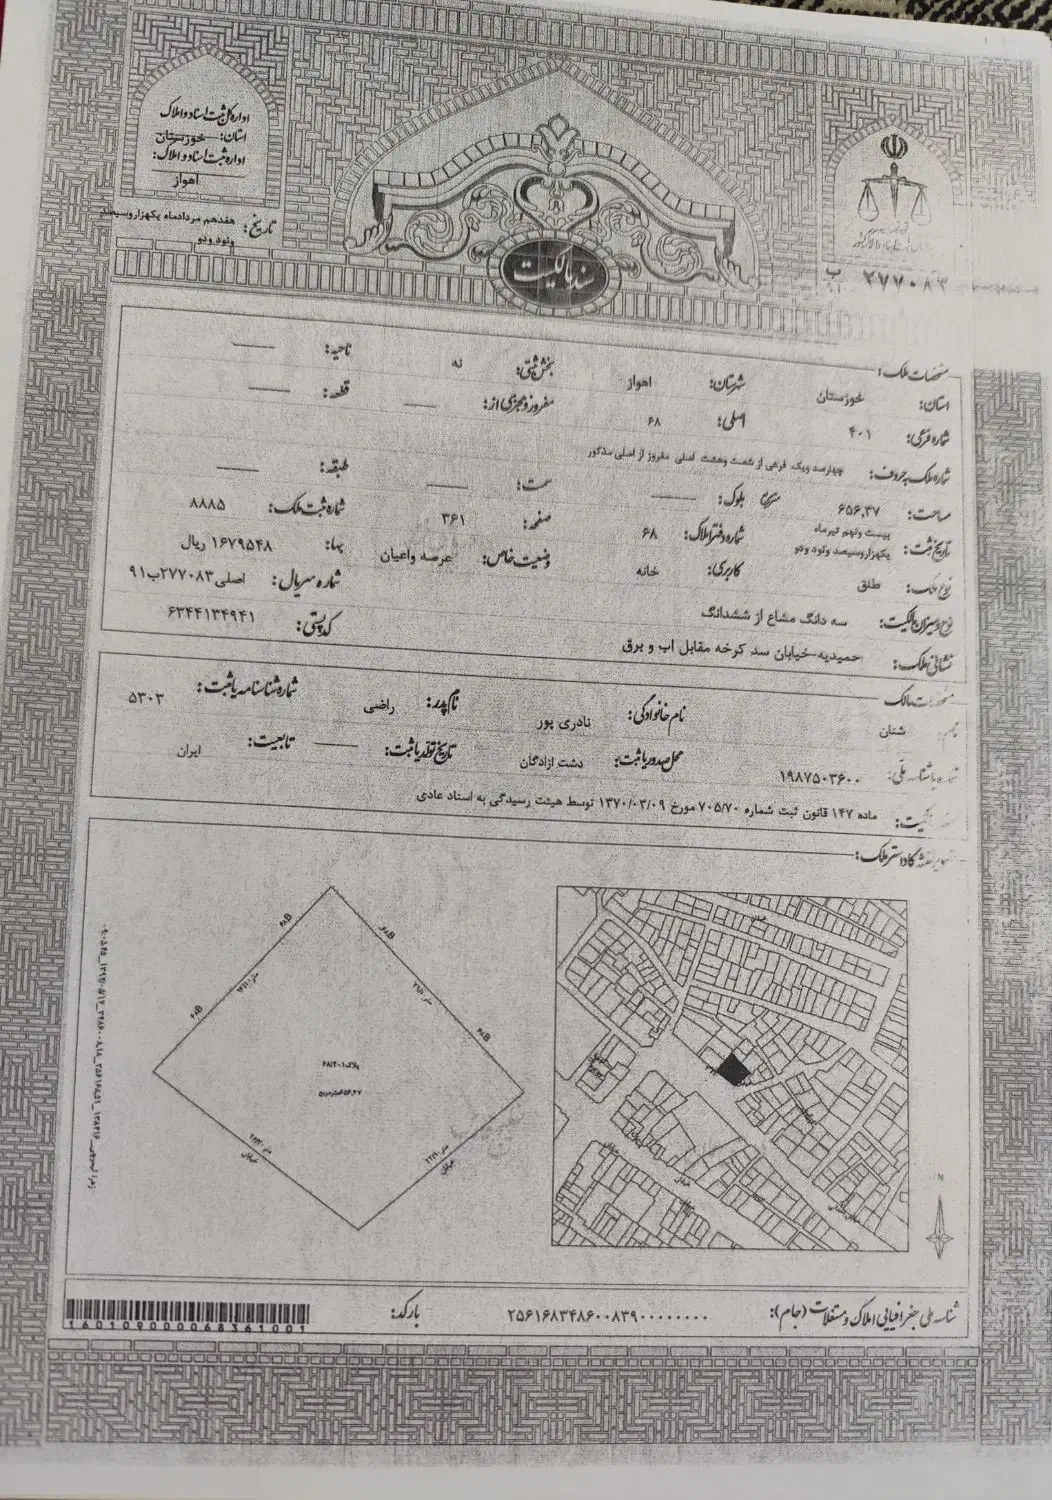 اداره کل ثبت اسناد و املاک
استان: خوزستان
اداره ثبت اسناد و املاک:
اهواز
تاریخ: هفدهم مردادماه یکهزاروسیصد
ونود ودو
سند مالکیت
۲۷۷۰۸۳ ب
۹۱
مشخصات ملک:
استان: خوزستان شهرستان: اهواز بخش ثبتی: نه ناحیه:
شماره فرعی: ۴۰۱ اصلی: ۶۸ مفروز و مجزی از: قطعه:
شماره ملک به حروف: چهارصد ویک فرعی از شصت وهشت اصلی مفروز از اصلی مذکور
مساحت: ۶۵۶,۳۷ بلوک: سمت: طبقه:
تاریخ ثبت: بیست ونهم تیرماه یکهزاروسیصد ونود ودو شماره دفتر املاک: ۶۸ صفحه: ۳۶۱ شماره ثبت ملک: ۸۸۸۵
نوع ملک: طلق کاربری: خانه وضعیت خاص: عرصه واعیان بها: ۱۶۷۹۵۴۸ ریال
نوع و میزان مالکیت: سه دانگ مشاع از ششدانگ شماره سریال: اصلی۲۷۷۰۸۳ب۹۱
نشانی ملک: حمیدیه-خیابان سد کرخه مقابل اب و برق کد پستی: ۶۳۴۴۱۳۴۹۴۱
مشخصات مالک
نام: شنان نام خانوادگی: نادری پور نام پدر: راضی شماره شناسنامه یا ثبت: ۵۳۰۳
شماره یا شناسه ملی: ۱۹۸۷۵۰۳۶۰۰ محل صدور یا ثبت: دشت ازادگان تاریخ تولد یا ثبت: تابعیت: ایران
ماده ۱۴۷ قانون ثبت شماره ۷۰۵/۷۰ مورخ ۱۳۷۰/۰۳/۰۹ توسط هیئت رسیدگی به اسناد عادی
نقشه کاداستر ملک:
۶۸B
۶۸B
۶۸B
۶۸B
پلاک۶۸/۴۰۱
خیابان
خیابان
N
شناسه ملی جغرافیایی املاک و مستغلات (جام): ۲۵۶۱۶۸۳۴۸۶۰۰۸۳۹۰۰۰۰۰۰۰۰۰ بارکد:
160109000068361001